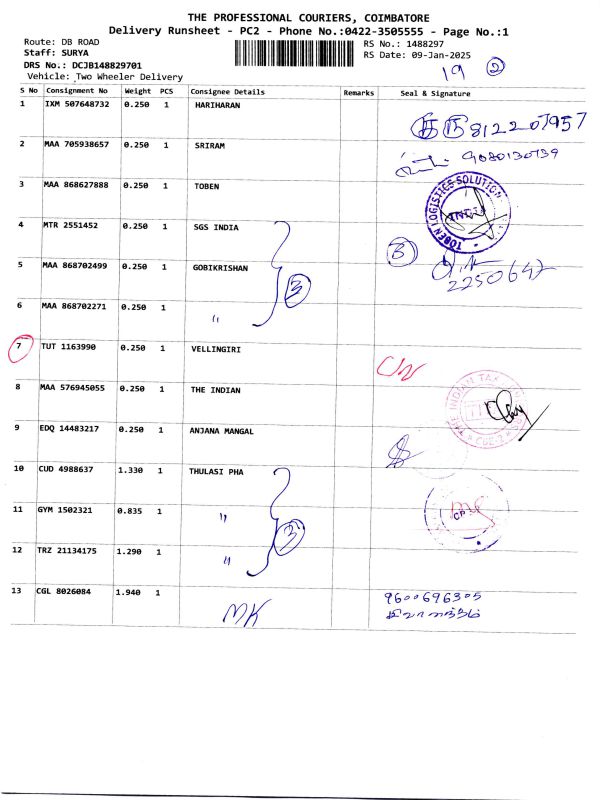 THE PROFESSIONAL COURIERS, COIMBATORE
Delivery Runsheet - PC2 - Phone No.:0422-3505555 - Page No.:1
Route: DB ROAD RS No.: 1488297
Staff: SURYA RS Date: 09-Jan-2025
DRS No.: DCJB148829701
Vehicle: Two Wheeler Delivery 19 2
S No Consignment No Weight PCS Consignee Details Remarks Seal & Signature
1 IXM 507648732 0.250 1 HARIHARAN
8122207957
2 MAA 705938657 0.250 1 SRIRAM 9080130739
3 MAA 868627888 0.250 1 TOBEN TOBEN LOGISTICS SOLUTION
4 MTR 2551452 0.250 1 SGS INDIA
5 MAA 868702499 0.250 1 GOBIKRISHAN 3 3
2250647
6 MAA 868702271 0.250 1 "
7 TUT 1163990 0.250 1 VELLINGIRI
8 MAA 576945055 0.250 1 THE INDIAN THE INDIAN CBE-2
9 EDQ 14483217 0.250 1 ANJANA MANGAL
10 CUD 4988637 1.330 1 THULASI PHA
11 GYM 1502321 0.835 1 " 3
12 TRZ 21134175 1.290 1 "
13 CGL 8026084 1.940 1 MK 9600696305